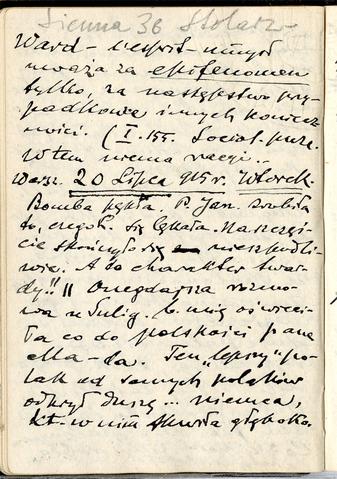 Sienna 36 Stolarz
Ward – l'esprit – umysł
uważa za epifenomen
tylko, za następstwo przy-
padkowe innych koniecz-
ności. (I. 155. Socjol. pure.
W tem niema racji..
Warsz. 20 Lipca 915 r. Wtorek.
Bomba pękła. P. Jan. zrobiła
to, czego się lękała. Na szczęś-
cie skończyło się nieszkodli-
wie. A to charakter twar-
dy!! Onegdajsza rozmo-
wa u Sulig. b. mię oświeci-
ła co do polskości pana
ella-da. Ten „lepszy" po-
lak od samych polaków
odkrył duszę... niemca,
kt. w nim tkwiła głęboko.